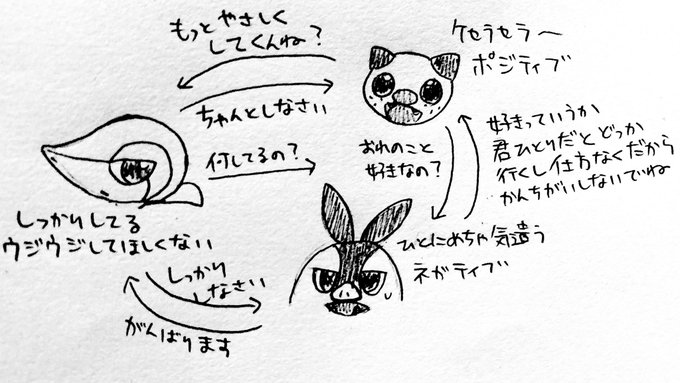 もっとやさしく
してくんね？
ちゃんとしなさい
ケセラセラ～
ポジティブ
何してるの？
おれのこと
好きなの？
好きっていうか
君ひとりだとどっか
行くし仕方なくだから
かんちがいしないでね
しっかりしてる
ウジウジしてほしくない
ひとにめちゃ気遣う
ネガティブ
しっかり
しなさい
がんばります